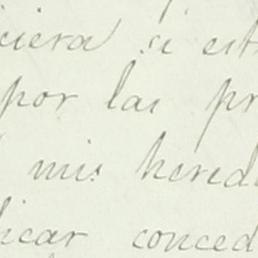 iciera si est
por las pr
mis hered
licar conced